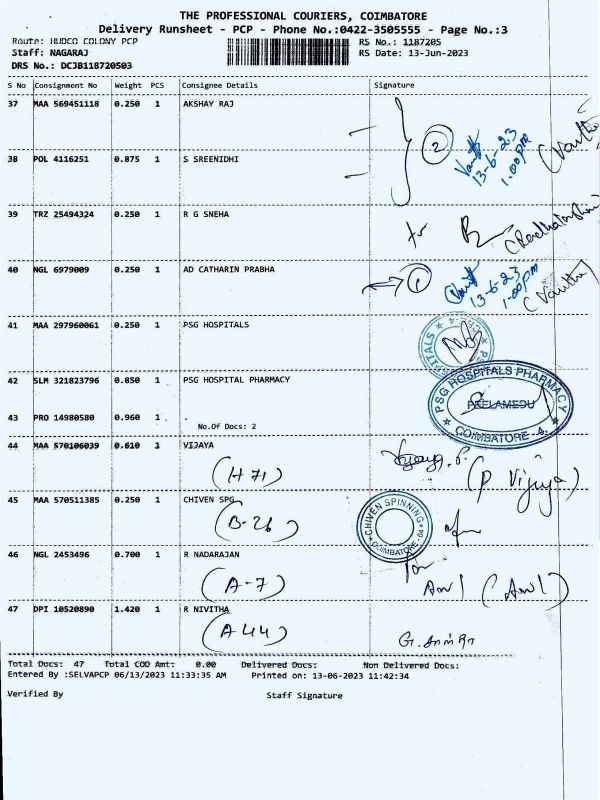 THE PROFESSIONAL COURIERS, COIMBATORE
Delivery Runsheet - PCP - Phone No.:0422-3505555 - Page No.:3
Route: HUDCO COLONY PCP RS No.: 1187205
Staff: NAGARAJ RS Date: 13-Jun-2023
DRS No.: DCJB118720503
S No Consignment No Weight PCS Consignee Details Signature
37 MAA 569451118 0.250 1 AKSHAY RAJ
2 13-6-23 1.00pm
38 POL 4116251 0.875 1 S SREENIDHI
39 TRZ 25494324 0.250 1 R G SNEHA
40 NGL 6979009 0.250 1 AD CATHARIN PRABHA
1 13-6-23 1.00pm
41 MAA 297960061 0.250 1 PSG HOSPITALS
42 SLM 321823796 0.850 1 PSG HOSPITAL PHARMACY
PSG HOSPITALS PHARMACY
PEELAMEDU
COIMBATORE - 4.
43 PRO 14980580 0.960 1 .
No.Of Docs: 2
44 MAA 570106039 0.610 1 VIJAYA
(H 71) (P Vijaya)
45 MAA 570511385 0.250 1 CHIVEN SPG
(B-26)
CHIVEN SPINNING
COIMBATORE-04
46 NGL 2453496 0.700 1 R NADARAJAN
(A-7)
47 DPI 10520890 1.420 1 R NIVITHA
(A44)
Total Docs: 47 Total COD Amt: 0.00 Delivered Docs: Non Delivered Docs:
Entered By :SELVAPCP 06/13/2023 11:33:35 AM Printed on: 13-06-2023 11:42:34
Verified By Staff Signature